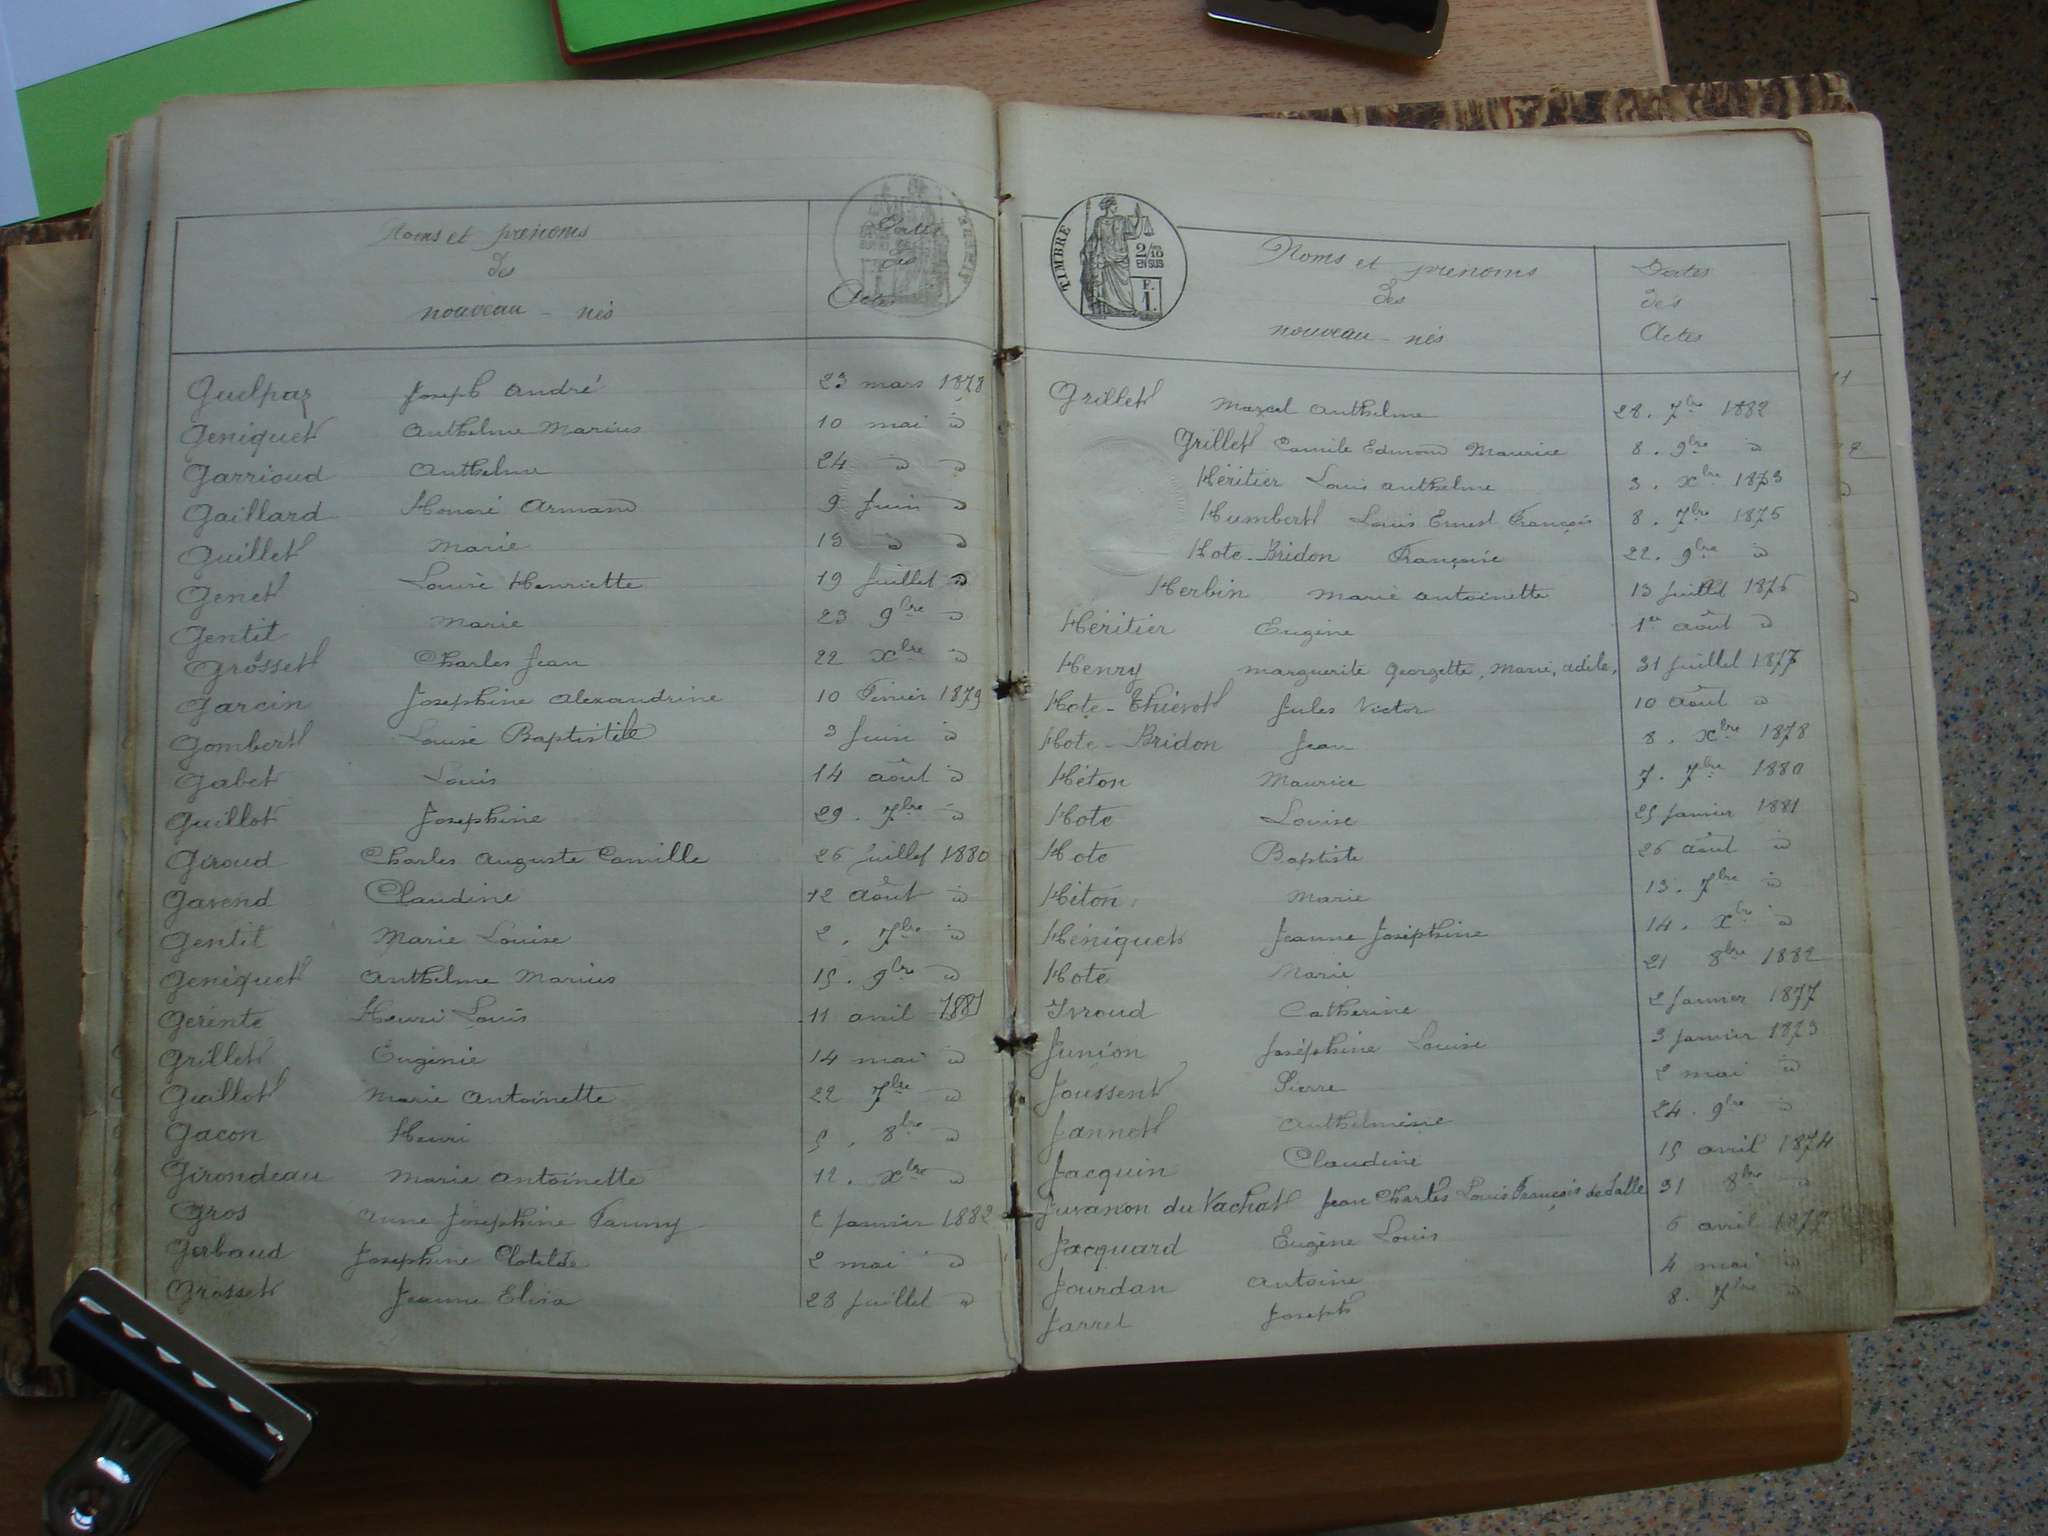 Noms et prénoms
des
nouveau-nés
Dates
des
Actes
Guelpaz Joseph André 23 mars 1878
Geniquet Anthelme Marius 10 mai d
Garrioud Anthelme 24 d d
Gaillard Honoré Armand 9 Juin d
Guillet Marie 15 d d
Genet Louise Henriette 19 Juillet d
Gentil Marie 23 9bre d
Grosset Charles Jean 22 Xbre d
Garcin Joséphine Alexandrine 10 Février 1879
Gombert Louise Baptistile 3 Juin d
Gabet Louis 14 août d
Guillot Joséphine 29. 7bre d
Giroud Charles Auguste Camille 26 Juillet 1880
Gavend Claudine 12 août d
Gentil Marie Louise 2. 7bre d
Geniquet Anthelme Marius 15. 9bre d
Gerente Henri Louis 11 avril 1881
Grillet Eugénie 14 mai d
Guillot Marie Antoinette 22 7bre d
Gacon Henri 5. 8bre d
Girondeau Marie Antoinette 12. Xbre d
Gros Anne Joséphine Fanny Janvier 1882
Gerbaud Joséphine Clotilde 2 mai d
Grosset Jeanne Elisa 28 Juillet d
TIMBRE
2/10
EN SUS
F.
1.
Noms et prénoms
des
nouveau-nés
Dates
des
Actes
Grillet Marcel Anthelme 28. 7bre 1882
Grillet Camile Edmond Maurice 8. 9bre d
Héritier Louis Anthelme 3. Xbre 1873
Humbert Louis Ernest François 8. 7bre 1875
Hote-Bridon Françoise 22. 9bre d
Herbin Marie Antoinette 13 Juillet 1876
Héritier Eugène 1er août d
Henry Marguerite Georgette, Marie, Adèle, 31 Juillet 1877
Hote-Thievot Jules Victor 10 août d
Hote-Bridon Jean 8. Xbre 1878
Héton Maurice 7. 7bre 1880
Hote Louise 25 Janvier 1881
Hote Baptiste 26 août d
Héton Marie 13. 7bre d
Héniquet Jeanne Joséphine 14. Xbre d
Hote Marie 21 8bre 1882
Ivroud Catherine 2 Janvier 1877
Junion Joséphine Louise 3 Janvier 1873
Joussent Pierre 2 mai d
Jannet Anthelmine 24. 9bre d
Jacquin Claudine 15 avril 1874
Juvanon du Vachat Jean Charles Louis François de Salle 31 8bre d
Jacquard Eugène Louis 6 avril
Jourdan Antoine 4 mai d
Jarret Joseph 8. 7bre d